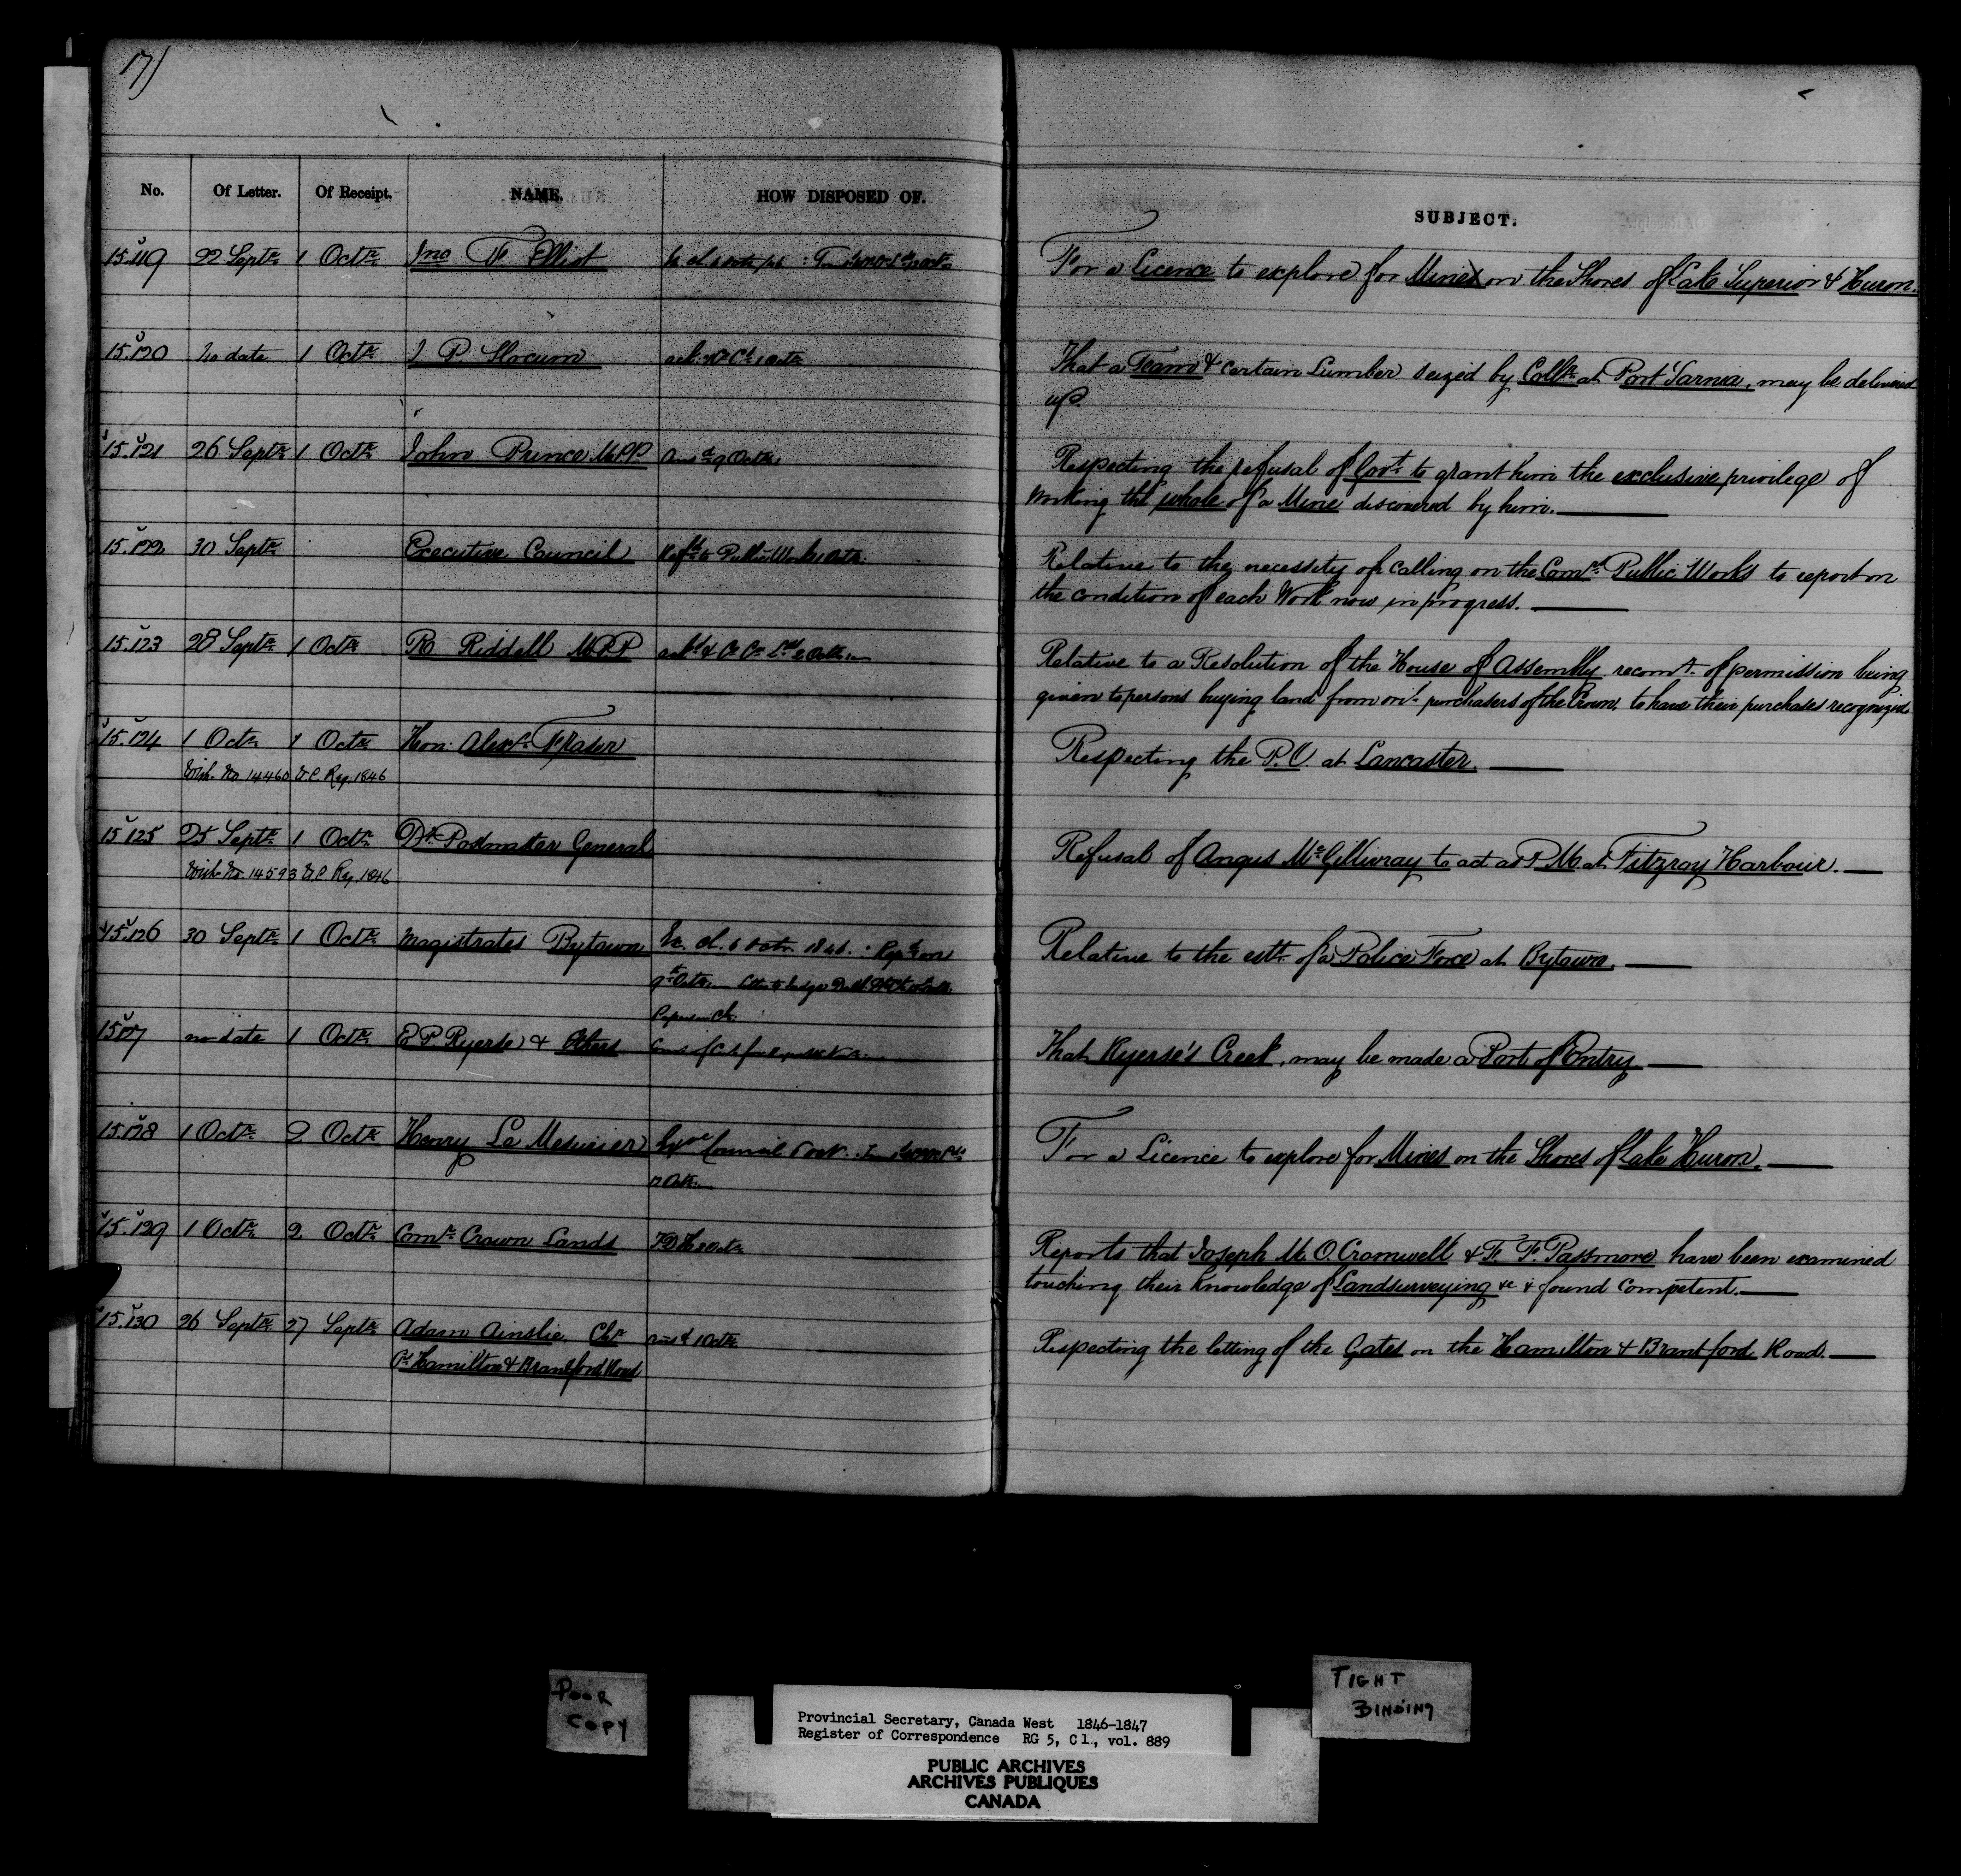 17)
No. Of Letter. Of Receipt. NAME. HOW DISPOSED OF. SUBJECT.
15.119 22 Septr 1 Octr Jno F Elliot
For a Licence to explore for Mines on the Shores of Lake Superior & Huron.
15.120 No date 1 Octr J P Slocum
That a Team & certain Lumber seized by Collr at Port Sarnia, may be delivered
up.
15.121 26 Septr 1 Octr John Prince M.P.P. Ansd 9 Octr
Respecting the refusal of Govt to grant him the exclusive privilege of
working the whole of a Mine discovered by him.
15.122 30 Septr Executive Council Refd to Public Works Octr
Relative to the necessity of calling on the Comrs Public Works to report on
the condition of each Work now in progress.
15.123 28 Septr 1 Octr R Riddell M.P.P
Relative to a Resolution of the House of Assembly recomg of permission being
given to persons buying land from oril purchasers of the Crown, to have their purchases recognized
15.124 1 Octr 1 Octr Hon: Alexr Fraser
With No 14460 W.C Reg. 1846
Respecting the P.O. at Lancaster
15.125 25 Septr 1 Octr Dy Postmaster General
With No 14593 W.C Reg. 1846
Refusal of Angus McGillivray to act as P.M. at Fitzroy Harbour.
15.126 30 Septr 1 Octr Magistrates Bytown Ex. Cl. 6 Octr 1846. Repd on
9th Octr
Papers in Cl.
Relative to the estt of a Police Force at Bytown.
15.127 no date 1 Octr E.P. Ryerse & Others
That Ryerse's Creek, may be made a Port of Entry
15.128 1 Octr 2 Octr Henry Le Mesurier Exve Council 6 Oct.
Octr
For a Licence to explore for Mines on the Shores of Lake Huron.
15.129 1 Octr 2 Octr Comr Crown Lands
Reports that Joseph M. O. Cromwell & F. F. Passmore have been examined
touching their knowledge of Landsurveying &c & found competent.
15.130 26 Septr 27 Septr Adam Ainslie Chn Ansd 1 Octr
Hamilton & Brantford Road
Respecting the letting of the Gates on the Hamilton & Brantford Road.
POOR
COPY
TIGHT
BINDING
Provincial Secretary, Canada West 1846-1847
Register of Correspondence RG 5, C1., vol. 889
PUBLIC ARCHIVES
ARCHIVES PUBLIQUES
CANADA